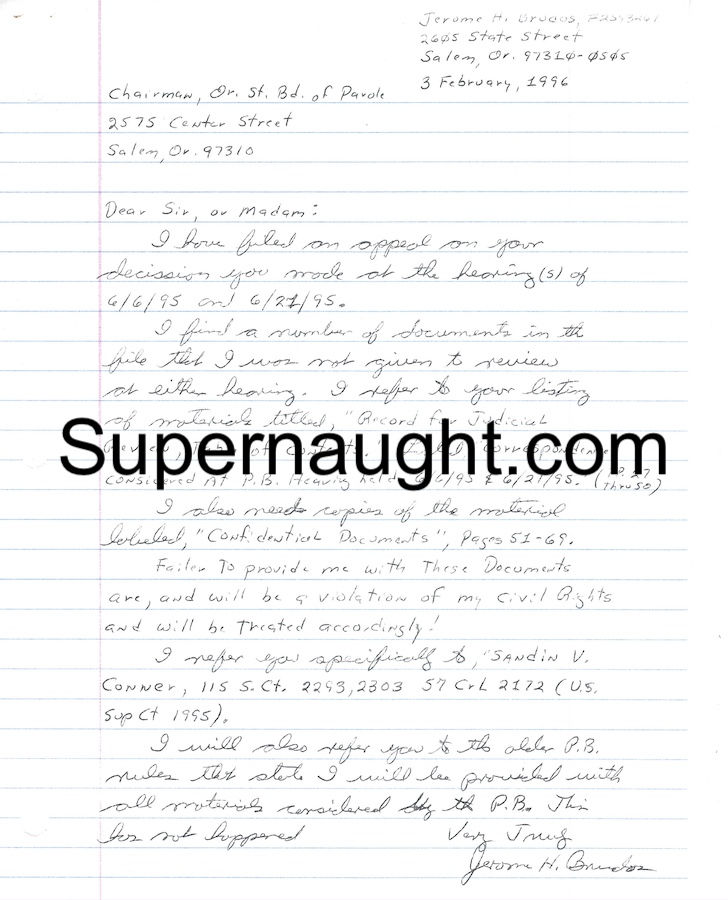 Jerome H. Brudos,
2605 State Street
Salem, Or. 97310-0505
3 February, 1996
Chairman, Or. St. Bd. of Parole
2575 Center Street
Salem, Or. 97310
Dear Sir, or Madam:
I have filed an appeal on your
decission you made at the hearing(s) of
6/6/95 and 6/21/95.
I find a number of documents in the
file that I was not given to review
at either hearing. I refer to your listing
of materials titled, "Record for Judicial
Review, Table of Contents. correspondence
Supernaught.com
Considered At P.B. Hearing held 6/6/95 & 6/21/95. (
Thru 50)
I also need copies of the material
labeled, "Confidential Documents", Pages 51-69.
Failer To provide me with These Documents
are, and will be a violation of my Civil Rights
and will be Treated accordingly!
I refer you specifically to, "SANDIN V.
CONNER, 115 S.Ct. 2293, 2303 57 CrL 2172 (U.S.
Sup Ct 1995).
I will also refer you to the older P.B.
rules that state I will be provided with
all materials considered by the P.B. This
has not happened
Very Truly
Jerome H. Brudos